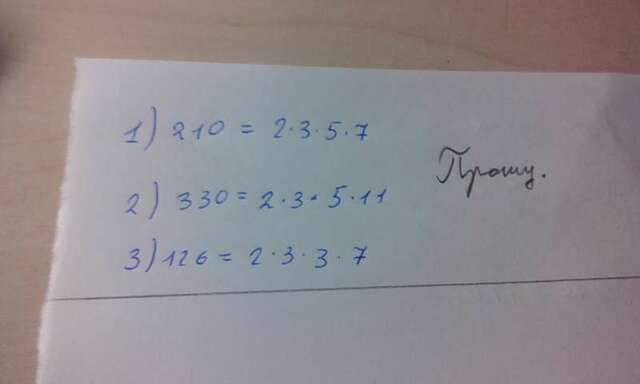 1) 210 = 2·3·5·7
2) 330 = 2·3·5·11
3) 126 = 2·3·3·7
Прошу.